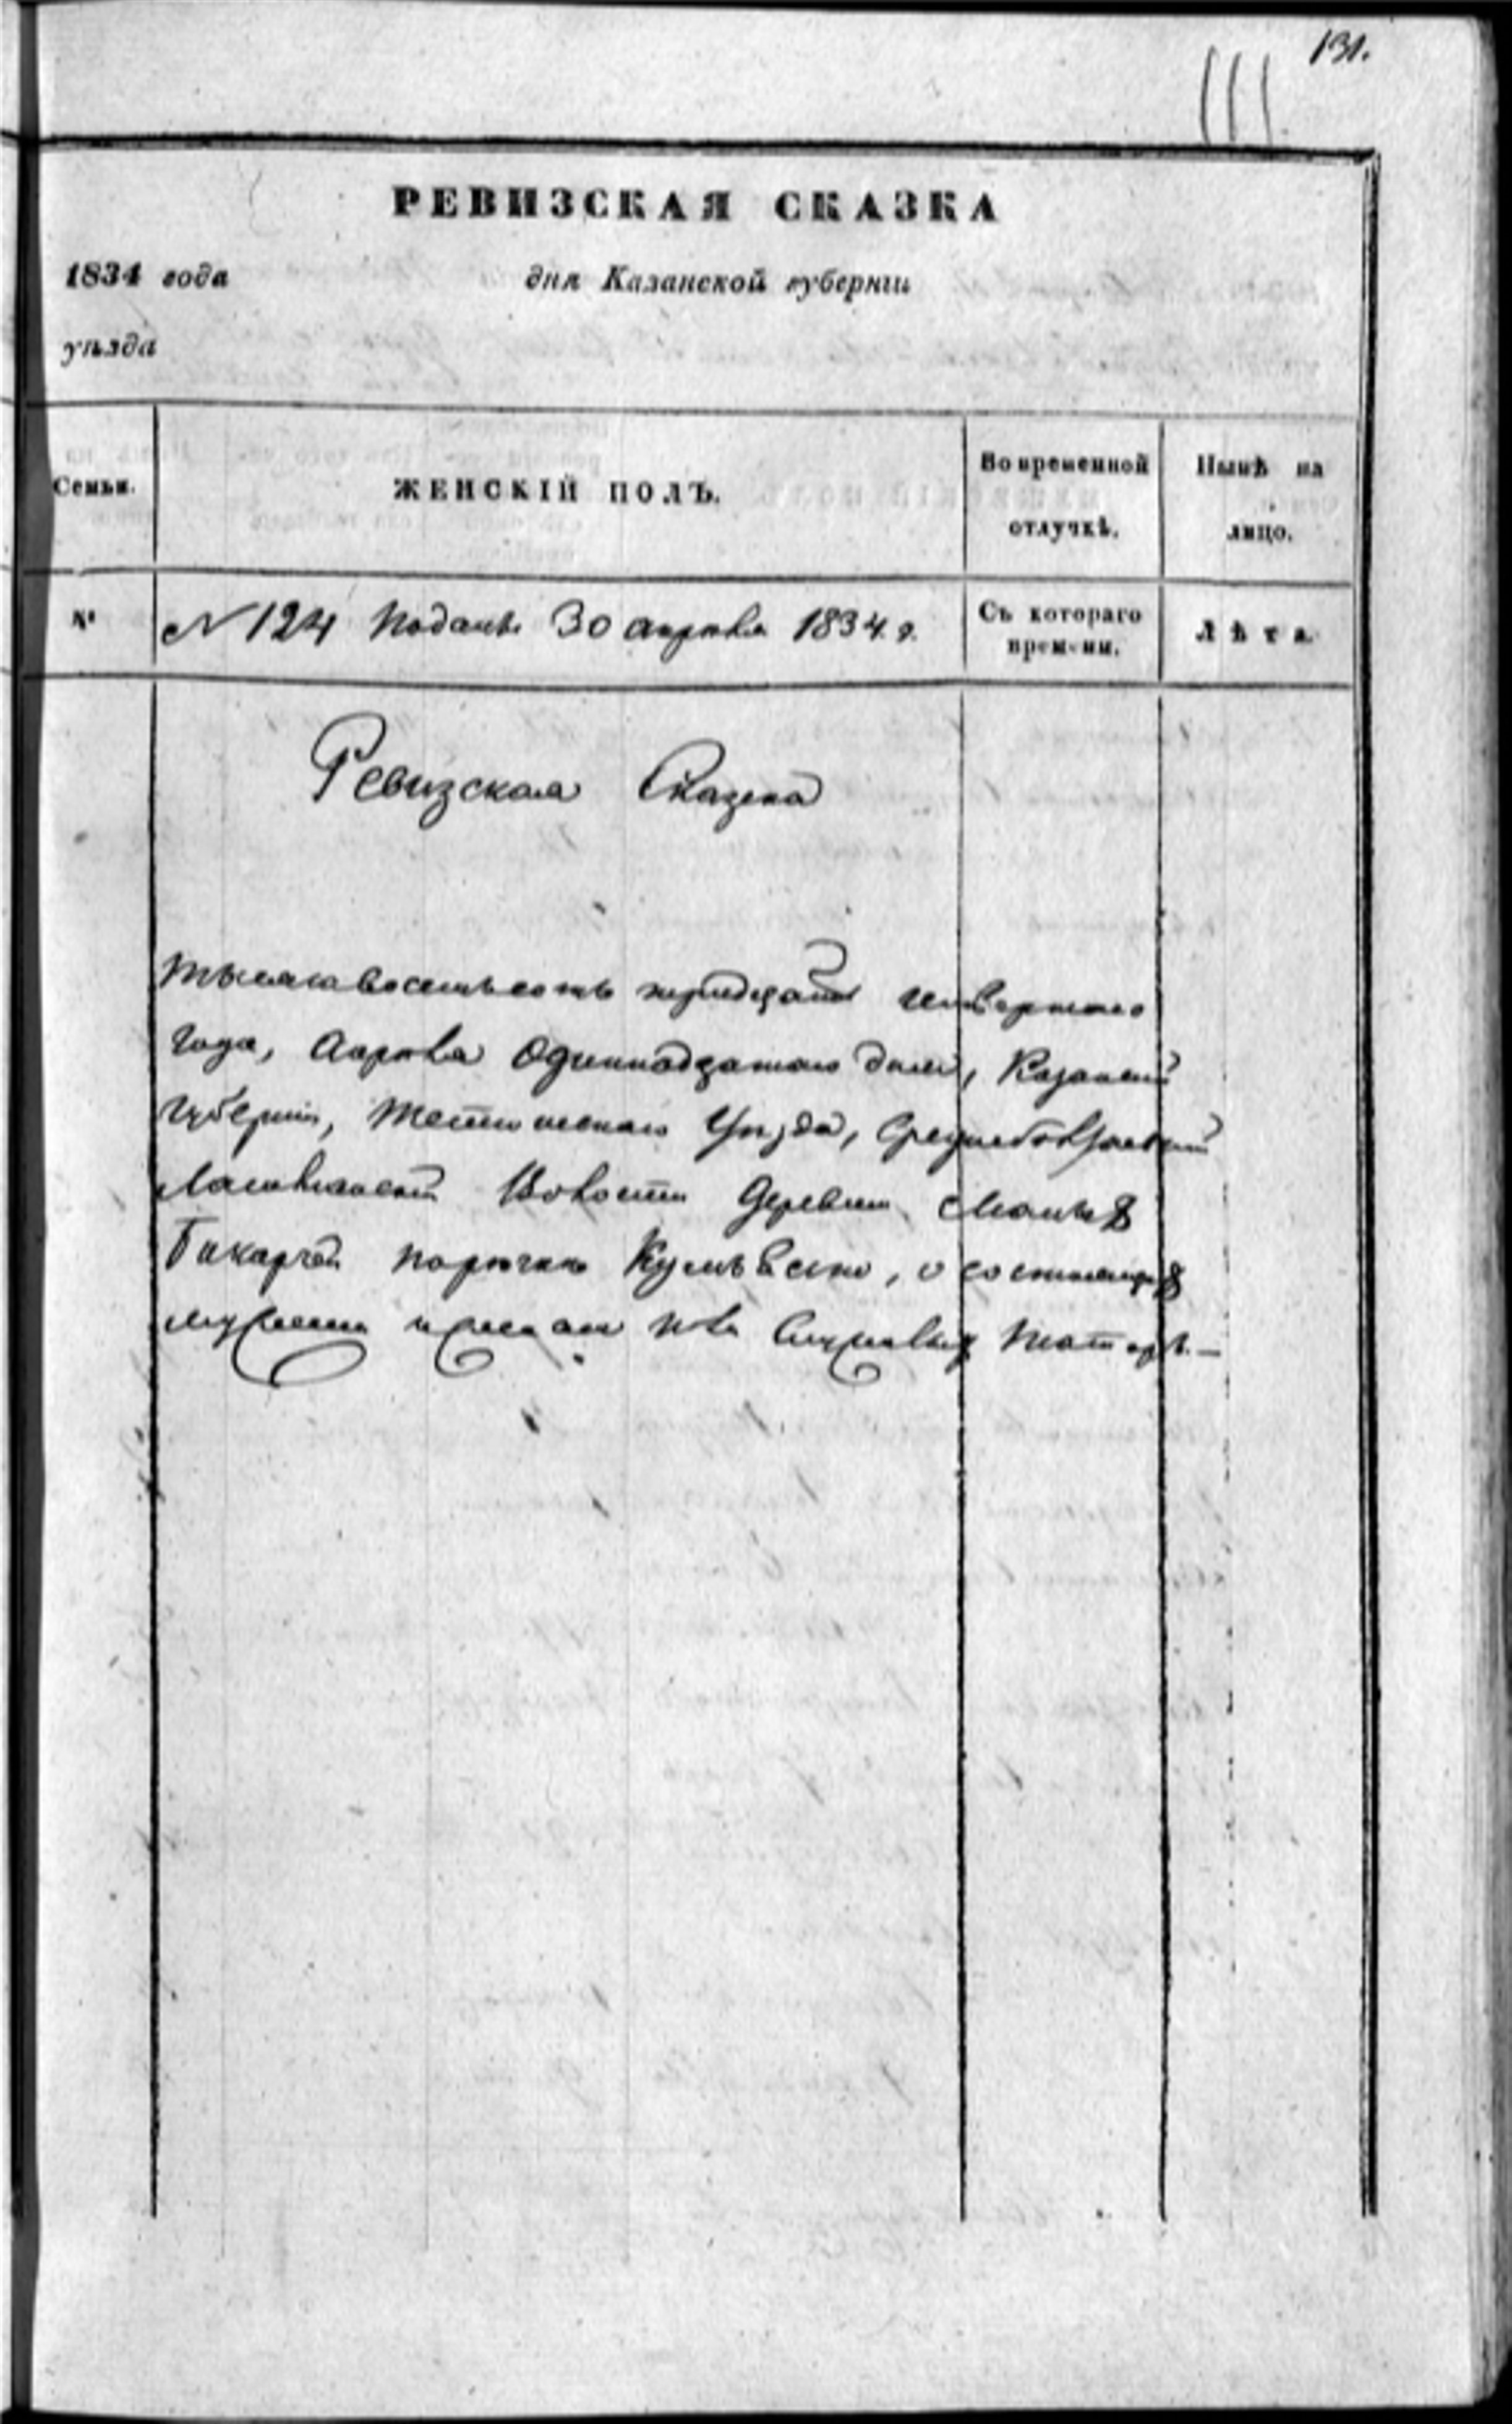 131.
РЕВИЗСКАЯ СКАЗКА
1834 года дня Казанской губернiи
уѣзда
Семьи. ЖЕНСКIЙ ПОЛЪ. Во временной отлучкѣ. Нынѣ на лицо.
№ N 124 Подана 30 апрѣля 1834 г. Съ котораго времени. Лѣта.
Ревизская Сказка
тысяча восемь сотъ тридцать четвертаго
года, Апрѣля Одиннадцатаго дня, Казанской
губернiи, Тетюшскаго Уѣзда,
Волости Деревни Малыхъ
Тикарчей, о состоящихъ
мужеска и женска пола Служивыхъ Татаръ.